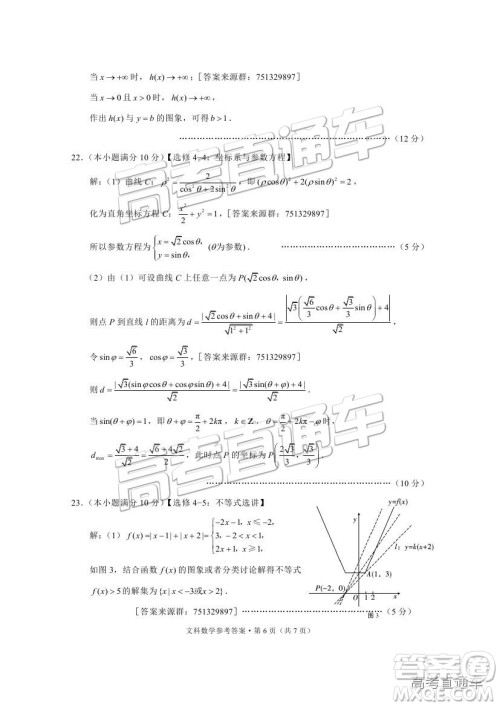 当 x→+∞ 时，h(x)→+∞；[答案来源群：751329897]
当 x→0 且 x>0 时，h(x)→+∞，
作出 h(x) 与 y=b 的图象，可得 b>1．
………………………………………………（12 分）
22．（本小题满分 10 分）【选修 4-4：坐标系与参数方程】
解：（1）曲线 C：ρ²=2/(cos²θ+2sin²θ)，即 (ρcosθ)²+2(ρsinθ)²=2，
化为直角坐标方程 C：x²/2+y²=1，
所以参数方程为 {x=√2cosθ，y=sinθ (θ为参数)．………………………………（5 分）
（2）由（1）可设曲线 C 上任意一点为 P(√2cosθ，sinθ)，
则点 P 到直线 l 的距离为 d=|√2cosθ+sinθ+4|/√(1²+1²)=|√3(√6/3 cosθ+√3/3 sinθ)+4|/√2，
令 sinφ=√6/3，cosφ=√3/3，[答案来源群：751329897]
则 d=|√3(sinφcosθ+cosφsinθ)+4|/√2=|√3sin(θ+φ)+4|/√2．
当 sin(θ+φ)=1，即 θ+φ=π/2+2kπ，k∈Z，θ=π/2-φ+2kπ 时，
d_max=(√3+4)/√2=(√6+4√2)/2，此时点 P 的坐标为(2√3/3，√3/3)．
………………………………………………（10 分）
23．（本小题满分 10 分）【选修 4-5：不等式选讲】
解：（1）f(x)=|x-1|+|x+2|={-2x-1，x≤-2，3，-2<x<1，2x+1，x≥1．
如图 3，结合函数 f(x) 的图象或者分类讨论解得不等式
f(x)>5 的解集为 {x|x<-3或x>2}．
[答案来源群：751329897] ………………………………（5 分）
y
y=f(x)
l：y=k(x+2)
A(1，3)
P(-2，0)
O
1 2
x
图 3
文科数学参考答案·第 6 页（共 7 页）
高考直通车
高考直通车
高考直通车
高考直通车